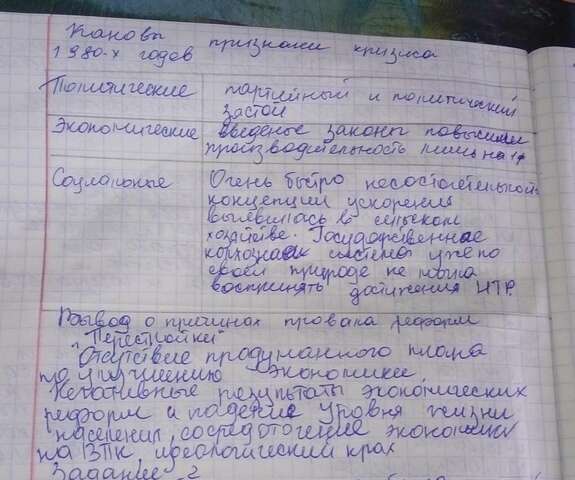 Кановы признаки кризиса
1980-х годов
Политические партийный и политический
застой
Экономические введеные законы повысили
производительность лишь на 1%
Социальные Очень быстро несостоятельность
концепции ускорения
выявилась в сельском
хозяйстве. Государственная
колхозная система уже по
своей природе не могла
воспринять достижения НТР
Вывод о причинах провала реформ
"Перестройки"
Отсутствие продуманного плана
по улучшению экономики
Негативные результаты экономических
реформ и падение уровня жизни
населения, сосредоточение экономики
на ВПК, идеологический крах
Задание 2